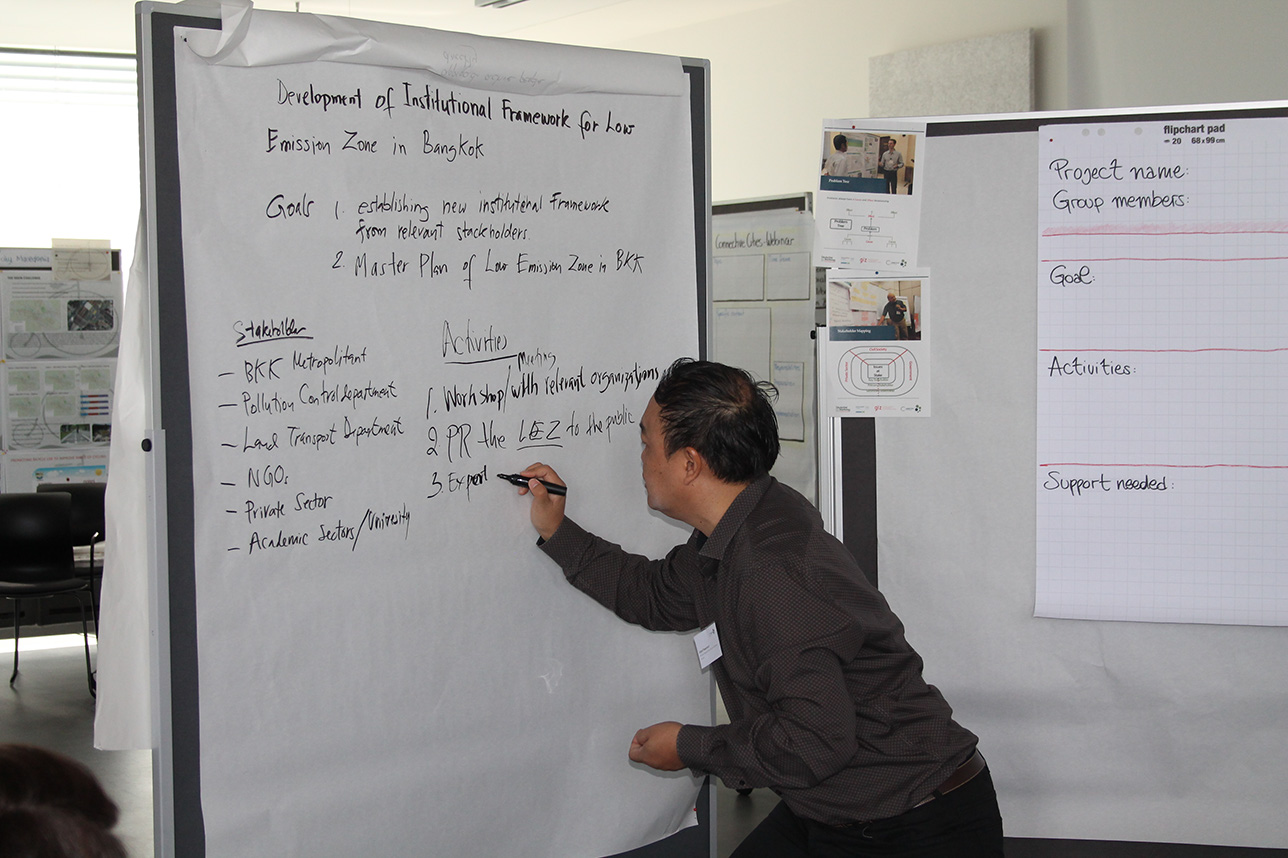 Development of Institutional Framework for Low
Emission Zone in Bangkok
Goals 1. establishing new institutenal Framework
from relevant stackholders.
2. Master Plan of Low Emission Zone in BKK
Stakeholder
- BKK Metropolitant
- Pollution Control department
- Land Transport Department
- NGOs
- Private Sector
- Academic Sectors/University
Activities
Meeting
1. Workshop/with relevant organizations
2 PR the LEZ to the public
3. Expert
Connective Cities Webinar
Problem Tree
Stakeholder Mapping
flipchart pad
20 68x99cm
Project name:
Group members:
Goal:
Activities:
Support needed: